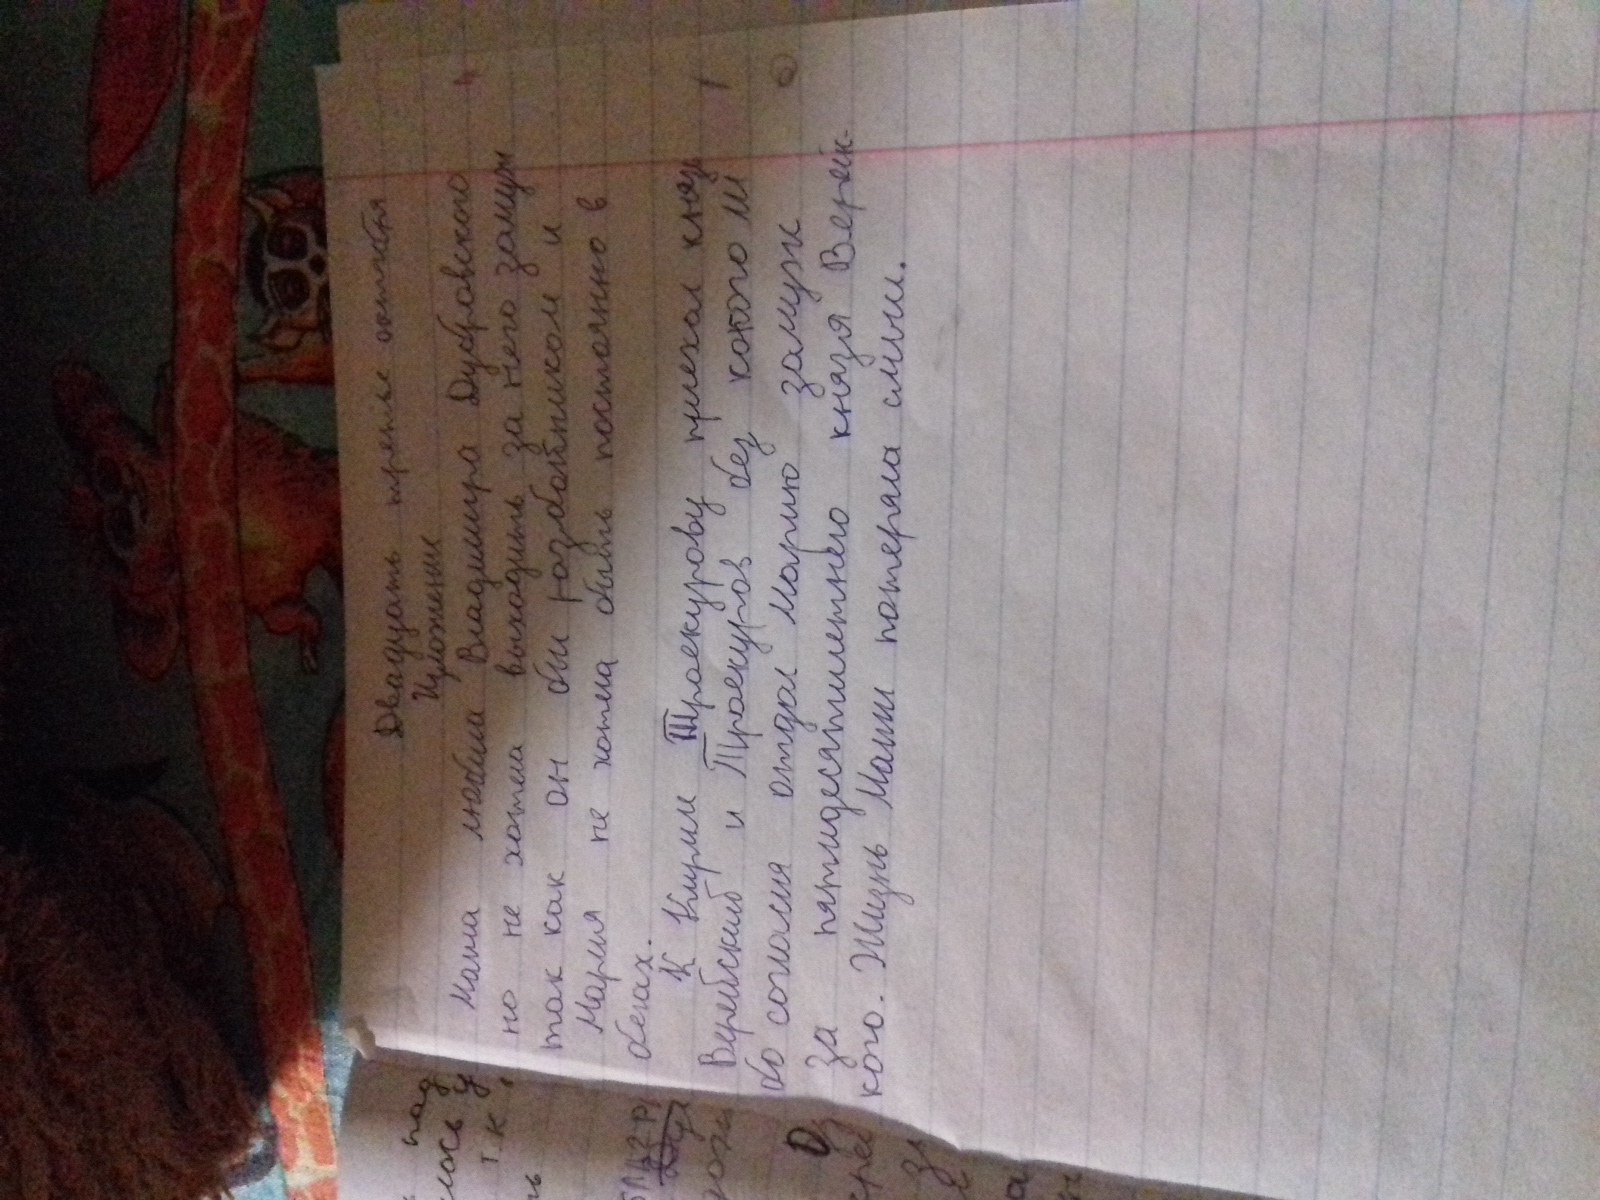 Двадцать третье октября
Изложение
Маша любила Владимира Дубровского
но не хотела выходить за него замуж
так как он был разбойником и
Мария не хотела быть постоянно в
бегах.
К Кирилл Троекурову приехал князь
Верейский и Троекуров без какого ли
бо согласия отдал Марию замуж
за пятидесятилетнего князя Верейс-
кого. Жизнь Маши потеряла смысл.